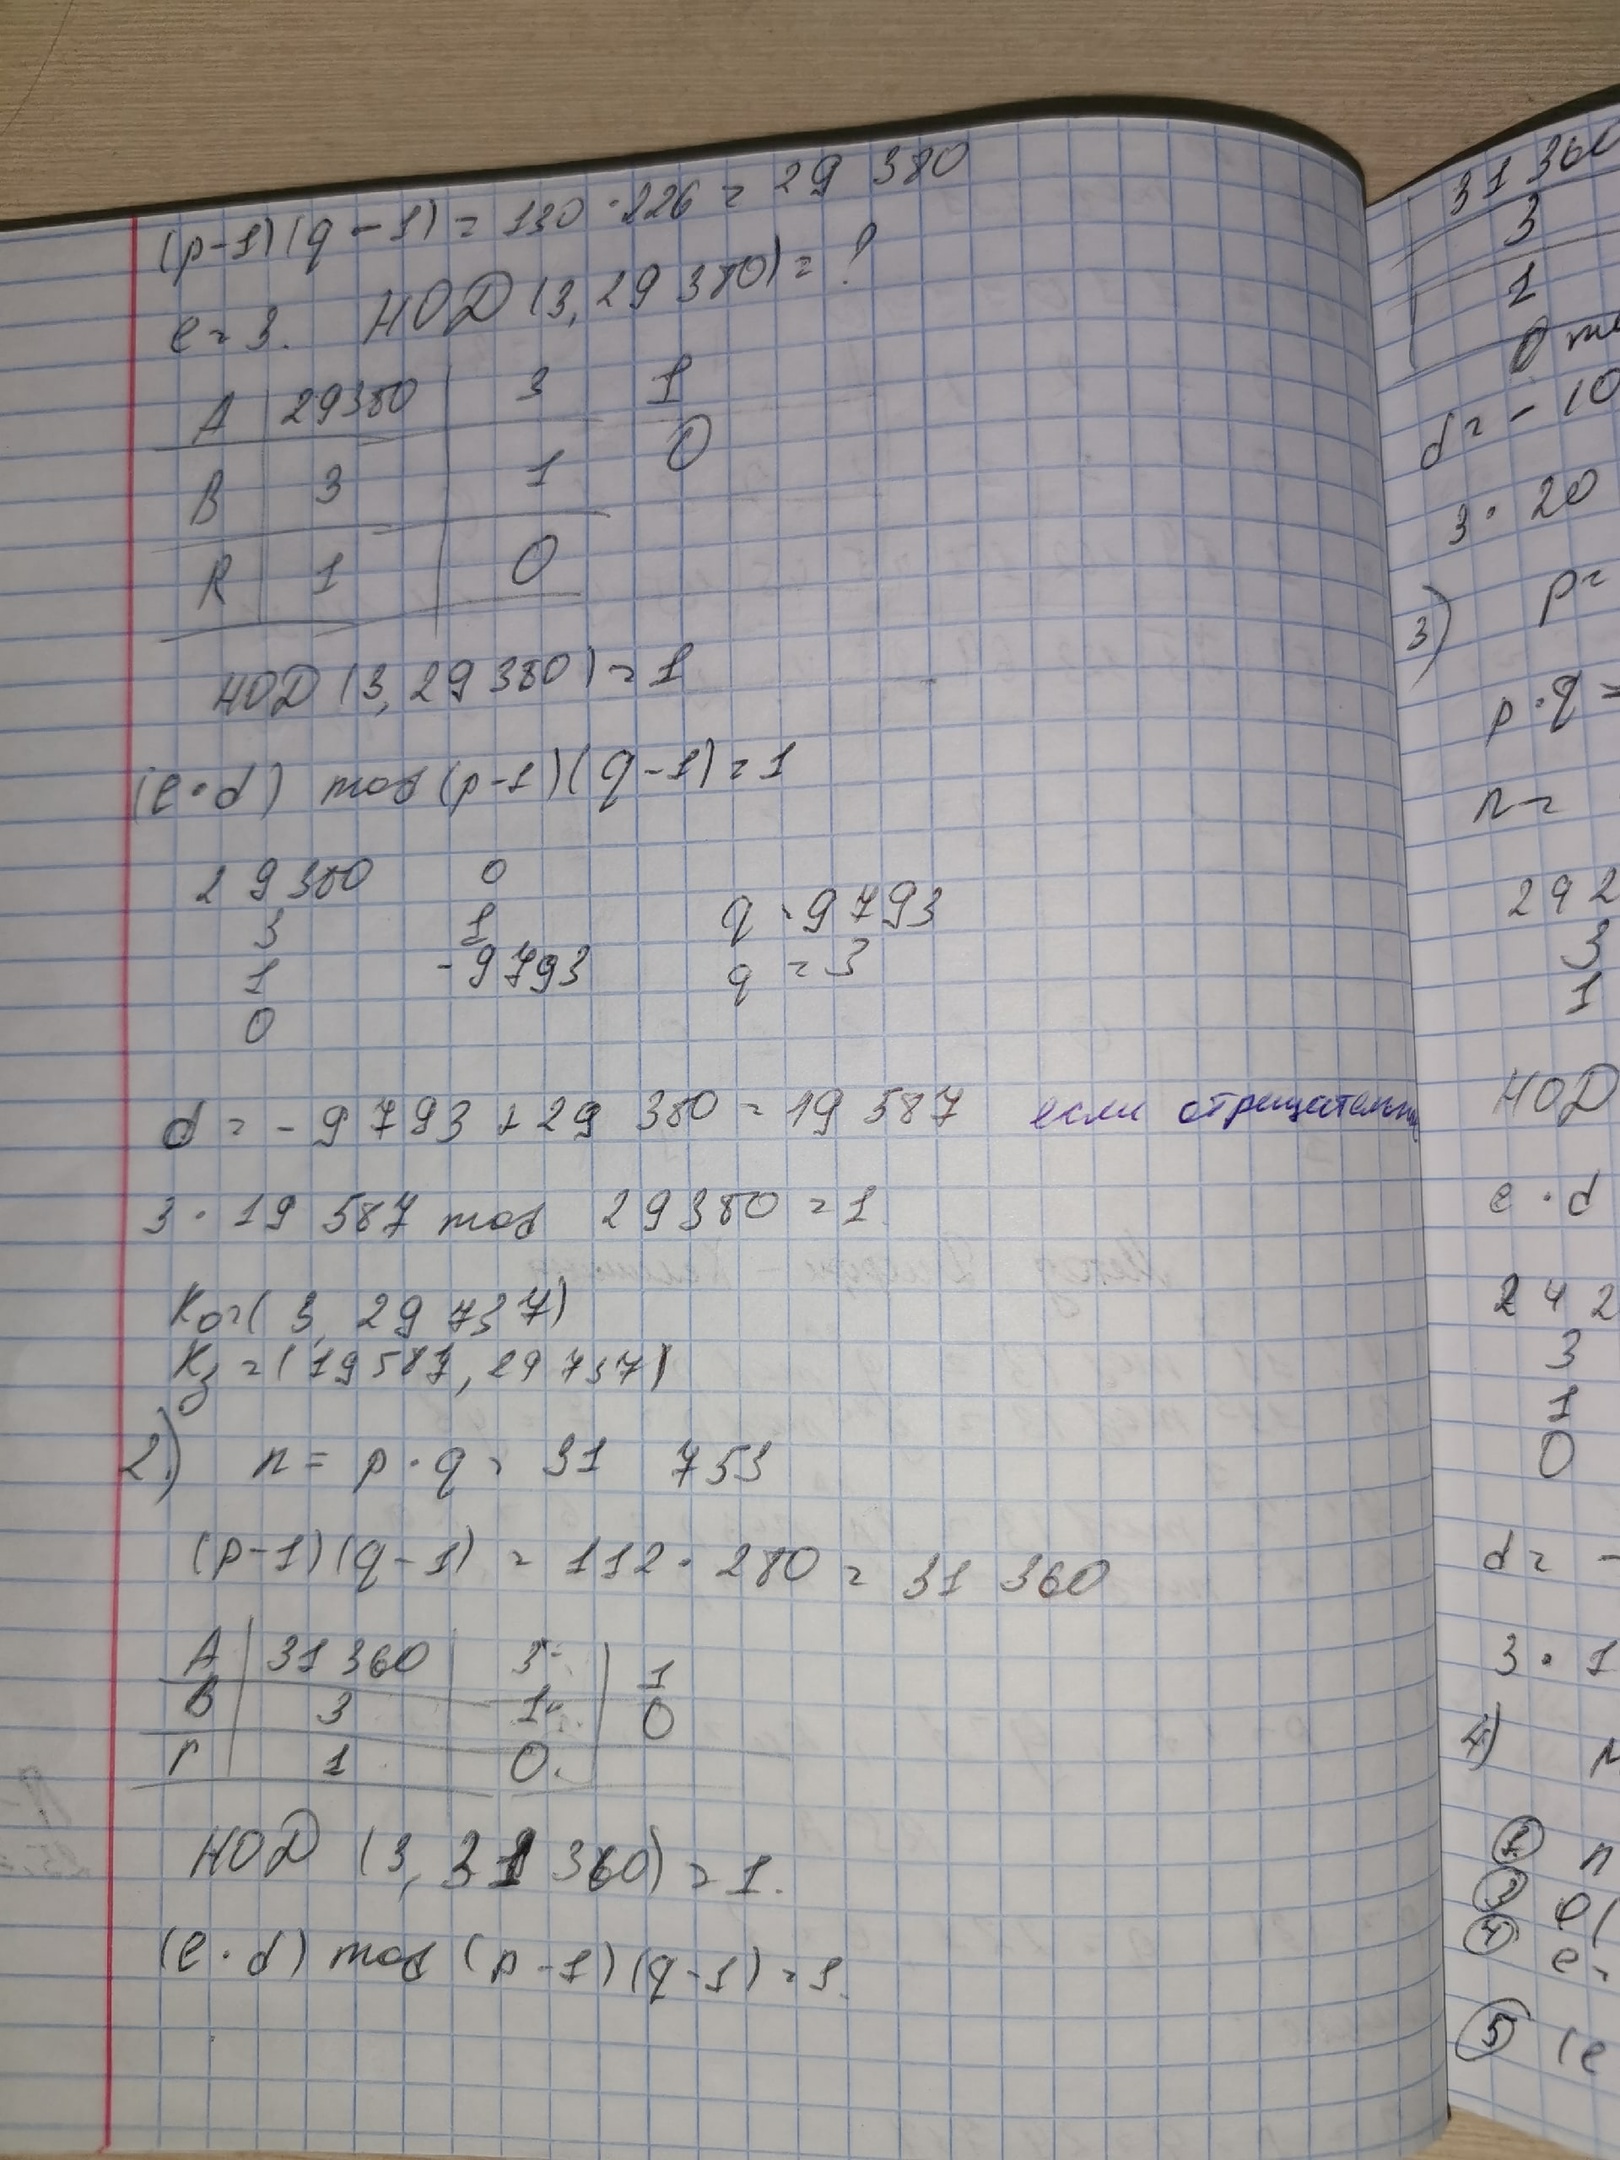 (p-1)(q-1) = 130·226 = 29 380
e = 3. НОД (3, 29 380) = ?
A 29380 3 1
B 3 1 0
R 1 0
НОД (3, 29 380) = 1
(e·d) mod (p-1)(q-1) = 1
29380 0
3 1 q = 9793
1 -9793 q = 3
0
d = -9793 + 29 380 = 19 587 если отрицательн
3·19 587 mod 29380 = 1
Ko = (3, 29 737)
Kз = (19587, 29737)
2) n = p·q = 31 753
(p-1)(q-1) = 112·280 = 31 360
A 31 360 3 1
B 3 1 0
r 1 0
НОД (3, 31 360) = 1.
(e·d) mod (p-1)(q-1) = 1.
31 360
3
1
0
d = -10
3·20
3) p =
p·q =
n =
292
3
1
НОД
e·d
242
3
1
0
d = -
3·1
4)
1 n
3
4 e =
5 (e